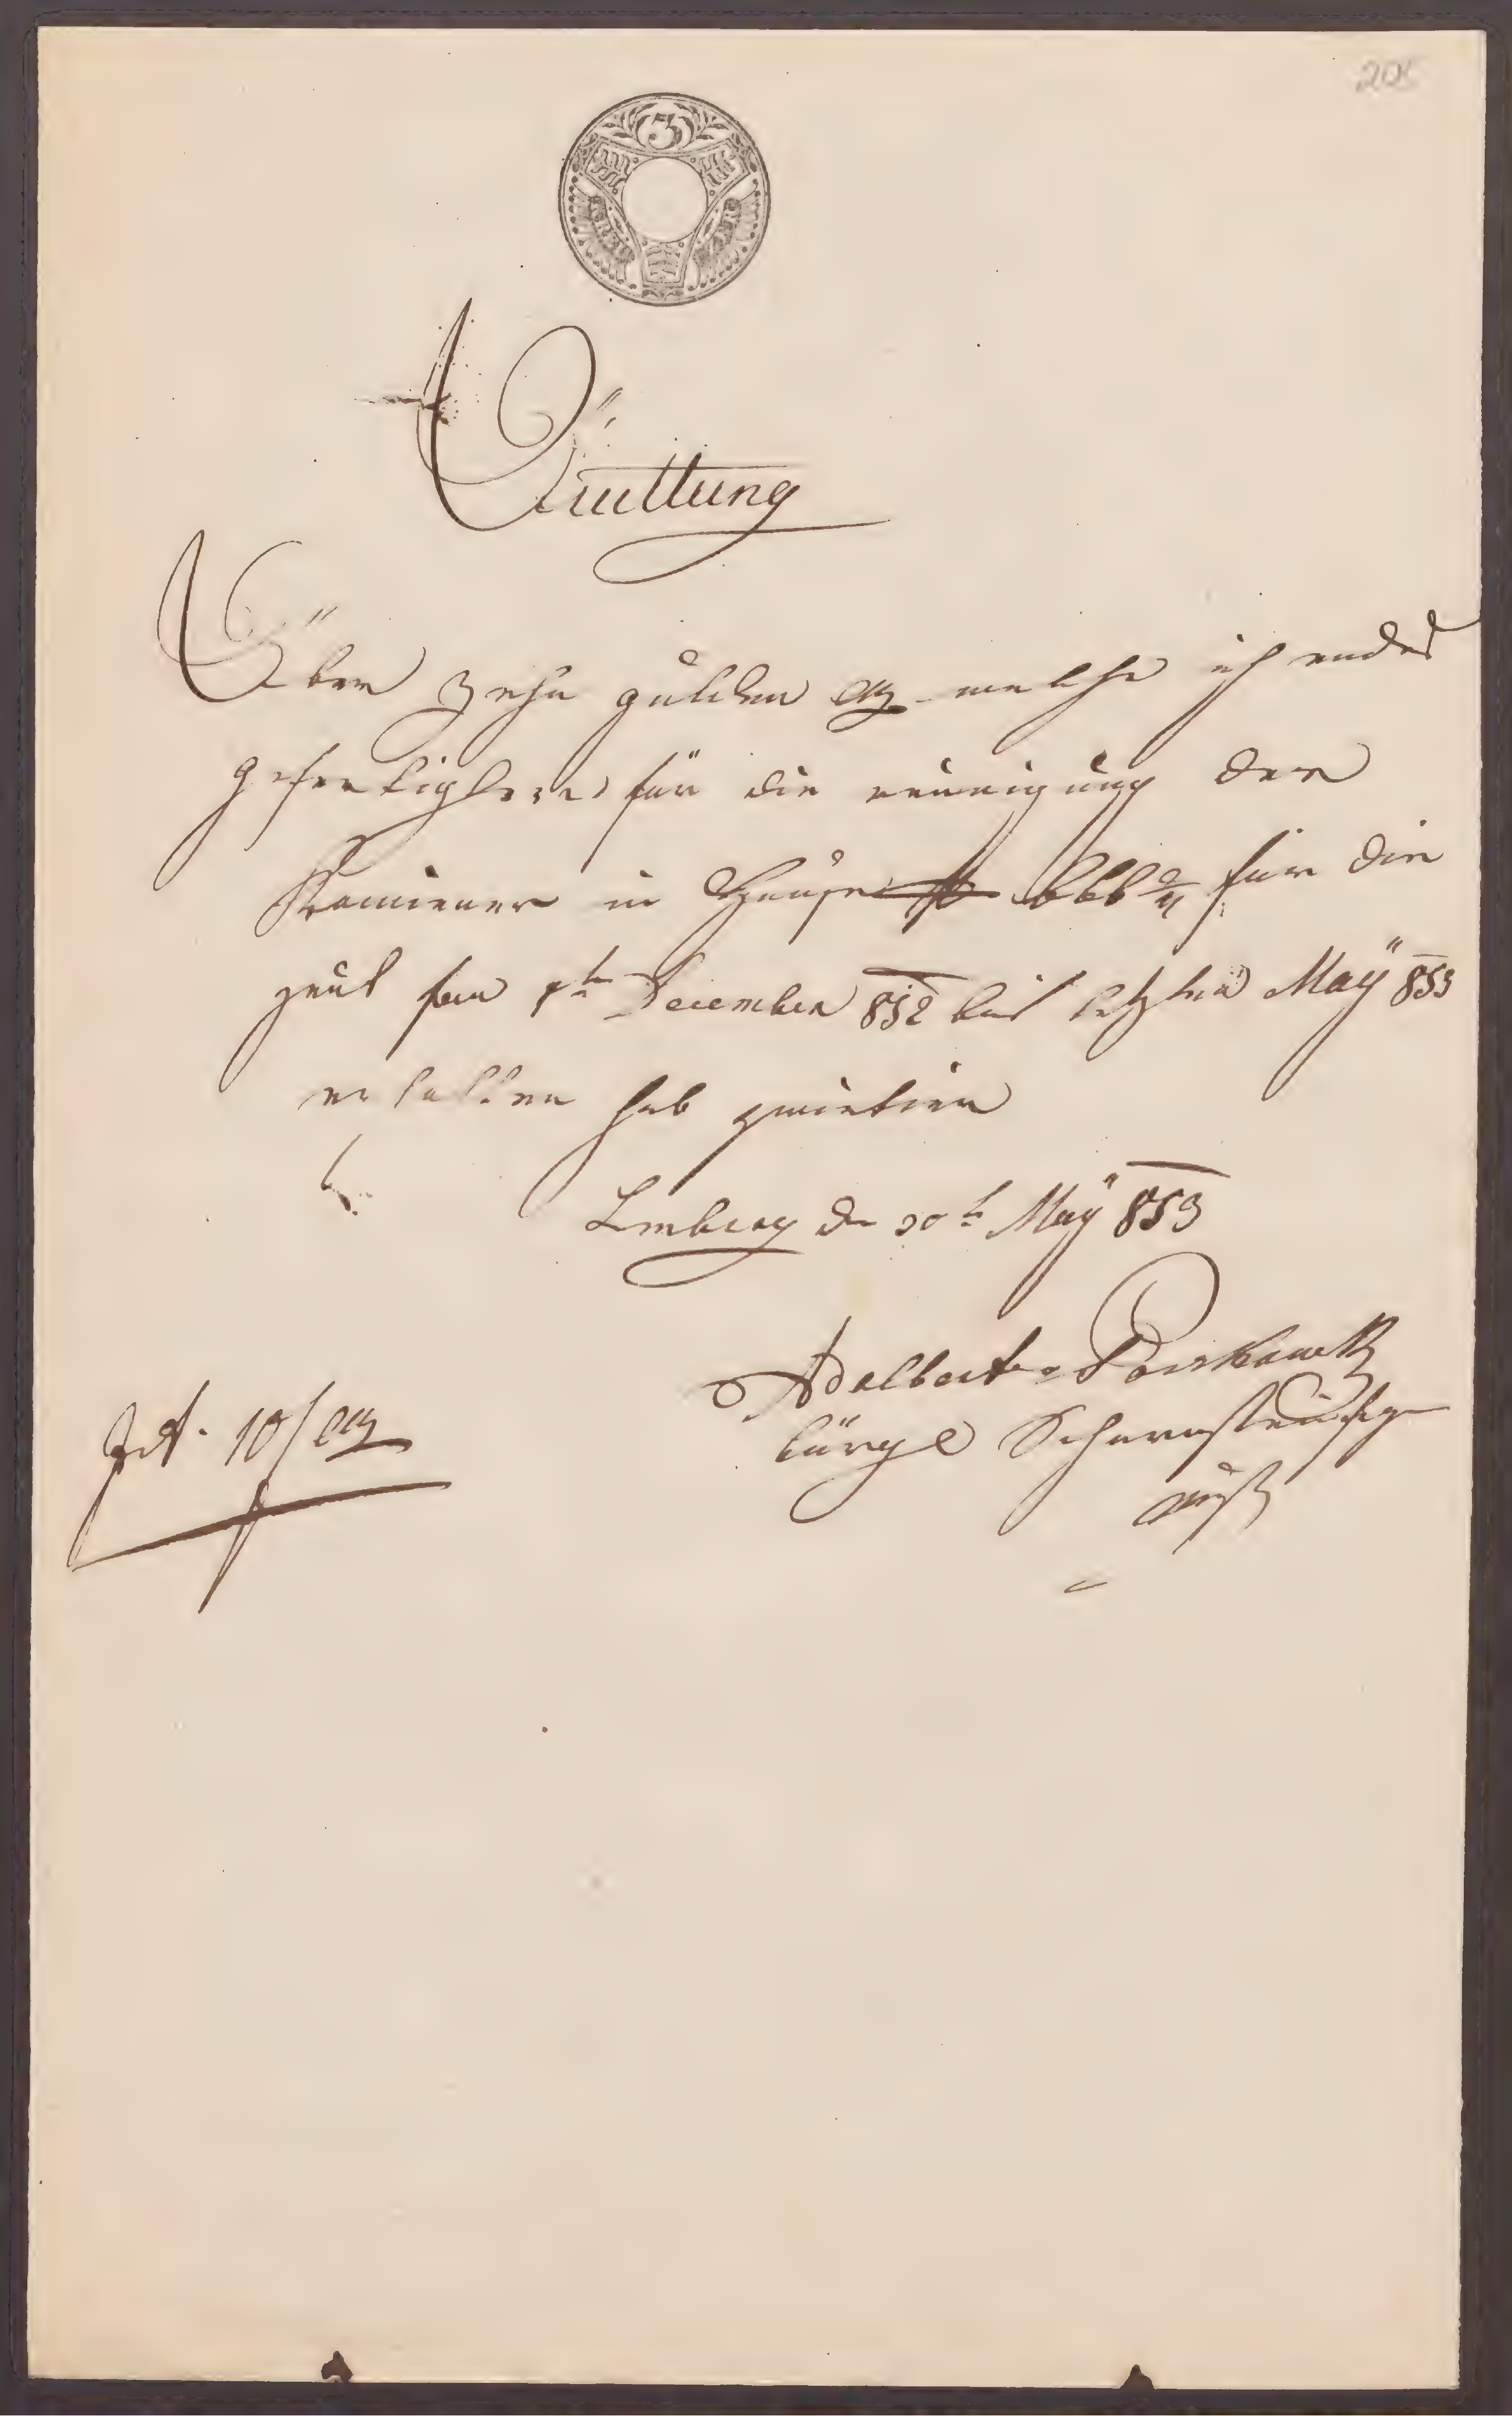 205
3
KREU ZER
Quittung
Über zehn gulden CM welche ich endes
gefertigter für die reinigung der
Kamiener in Hause 666 2/4 für die
zeit fon 1tn December 852 bis letzten May 853
erhalten hab quietire
Lemberg den 30tn May 853
Adalbert
bürgl Schornsteinfeger
Mst
Idt. 10/CM